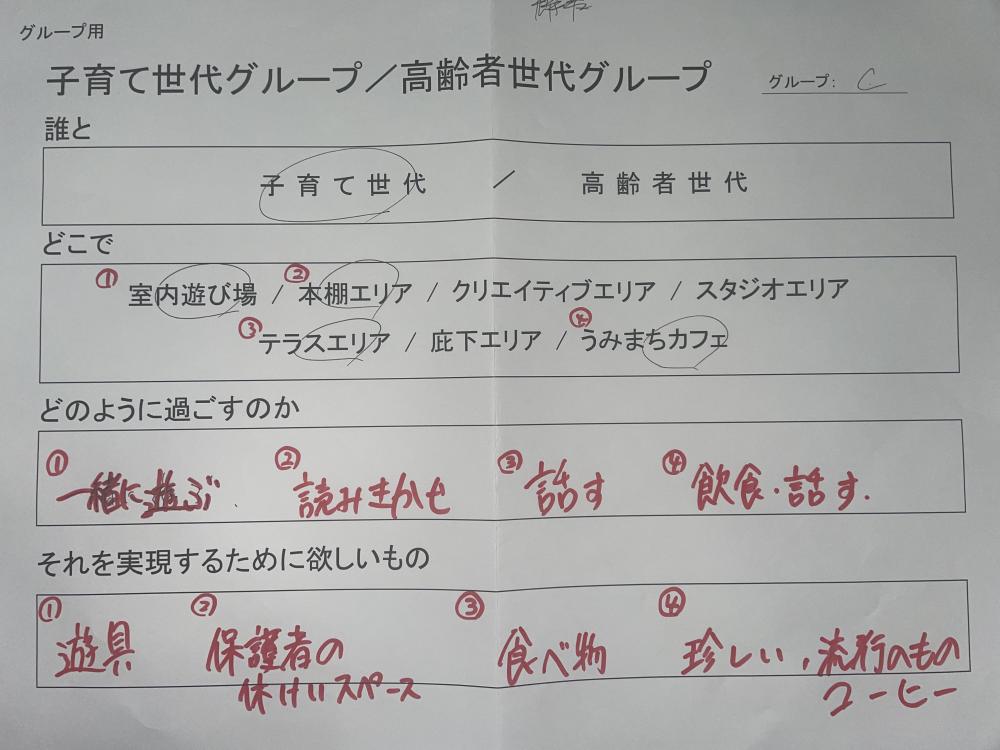 グループ用
子育て世代グループ／高齢者世代グループ
グループ: C
誰と
子育て世代 ／ 高齢者世代
どこで
① 室内遊び場 / ② 本棚エリア / クリエイティブエリア / スタジオエリア
③ テラスエリア / 庇下エリア / ④ うみまちカフェ
どのように過ごすのか
① 一緒に遊ぶ ② 読みきかせ ③ 話す ④ 飲食・話す.
それを実現するために欲しいもの
① 遊具 ② 保護者の ③ 食べ物 ④ 珍しい,流行のもの
休けいスペース コーヒー